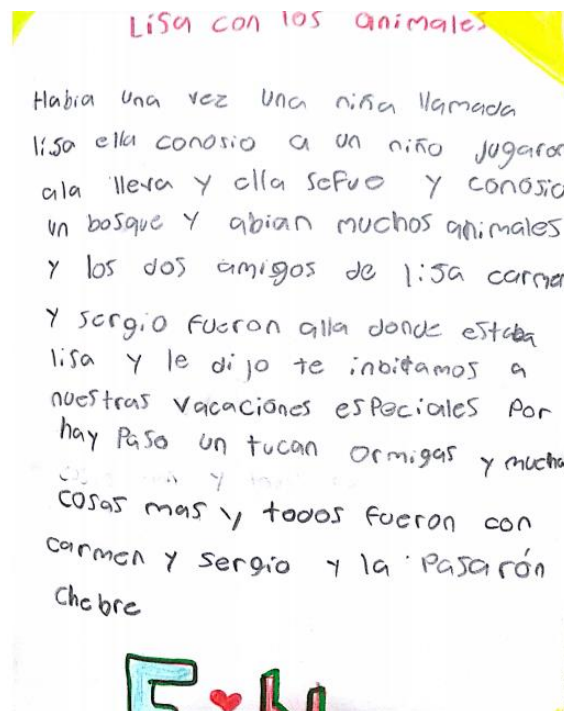 Lisa con los animales
Habia una vez una niña llamada
lisa ella conosio a un niño jugaron
ala lleva y ella sefue y conosio
un bosque y abian muchos animales
y los dos amigos de lisa carmen
y sergio fueron alla donde estaba
lisa y le dijo te inbitamos a
nuestras vacaciones especiales por
hay paso un tucan ormigas y mucha
cosas mas y todos fueron con
carmen y sergio y la pasarón
chebre